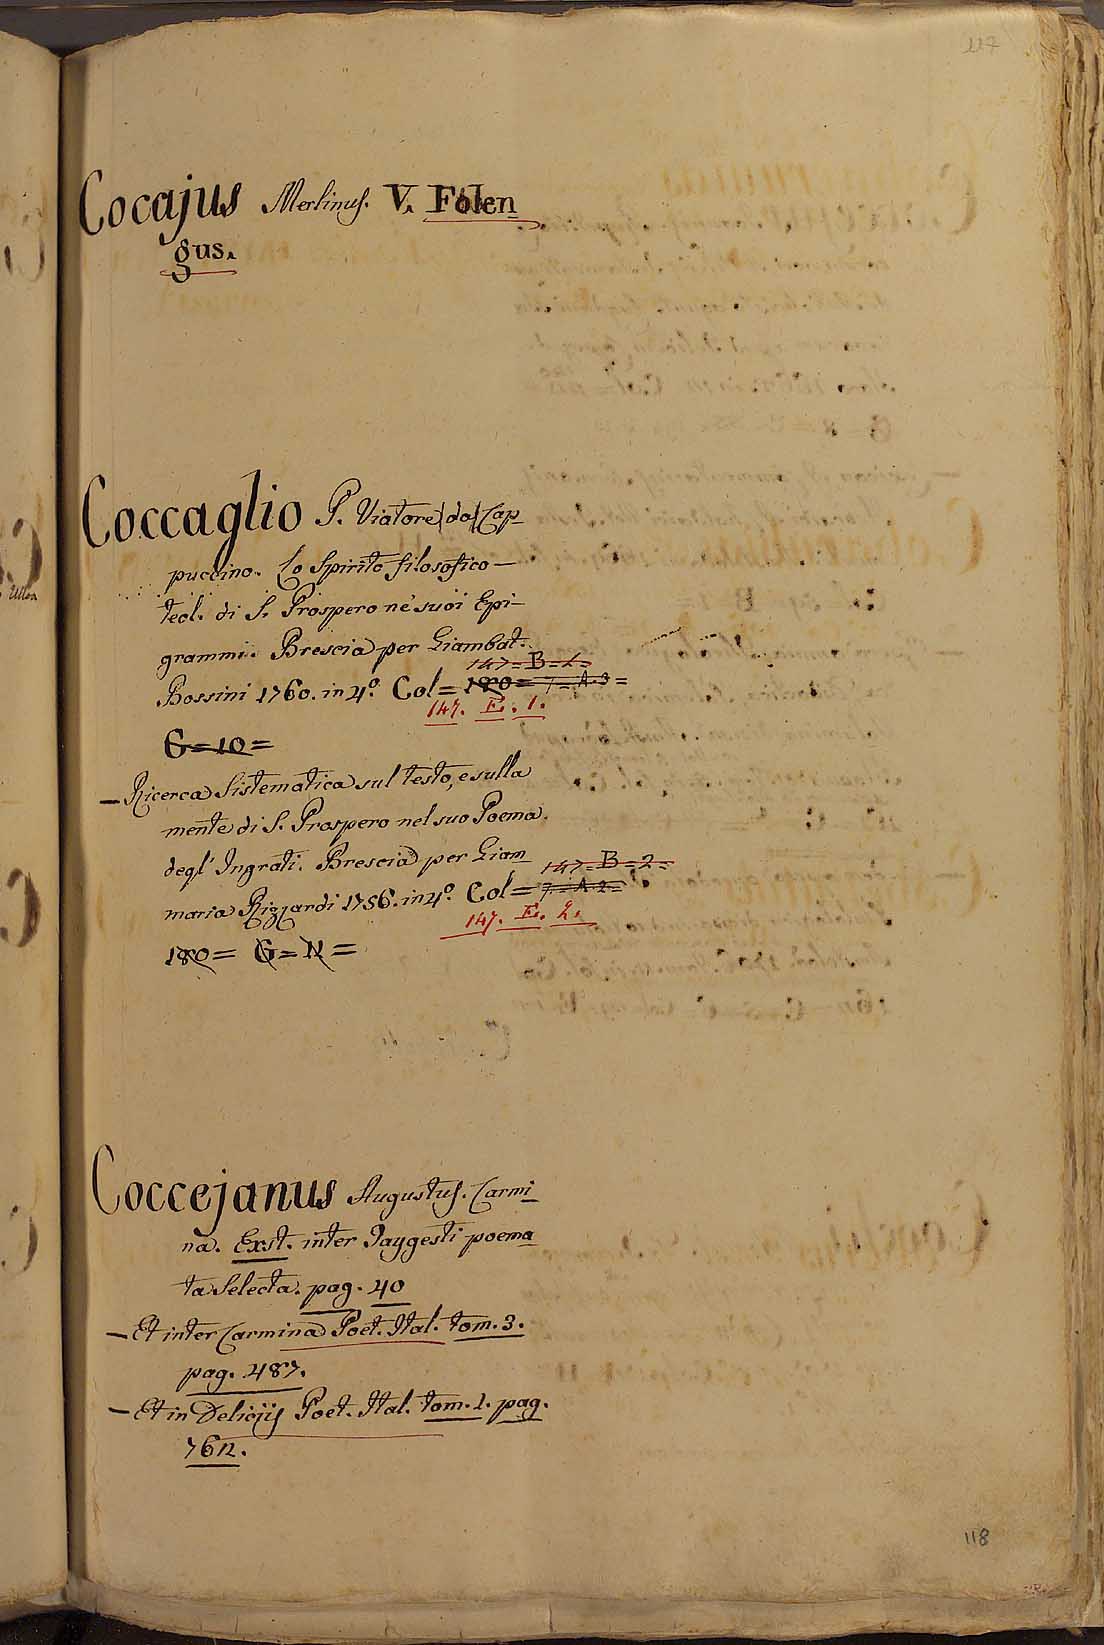 117
Cocajus Merlinus. V. Folen
gus.
Coccaglio P. Viatore (da) Cap
puccino. Lo Spirito filosofico-
teol. di S. Prospero ne' suoi Epi-
grammi. Brescia per Giambat.
147=B=1=
Bossini 1760. in 4.º Col= 180= 7=A.3=
147. E. 1.
G=10=
- Ricerca Sistematica sul testo, e sulla
mente di S. Prospero nel suo Poema
degl' Ingrati. Brescia per Giam
147=B=2=
maria Rizzardi 1756. in 4.º Col= 7=A.2=
147. E. 2.
180= G=11=
Coccejanus Augustus. Carmi
na. Exst. inter Jaygesti poema
ta Selecta. pag. 40
- Et inter Carmina Poet. Ital. tom. 3.
pag. 487.
- Et in Deliciis Poet. Ital. tom. 1. pag.
118